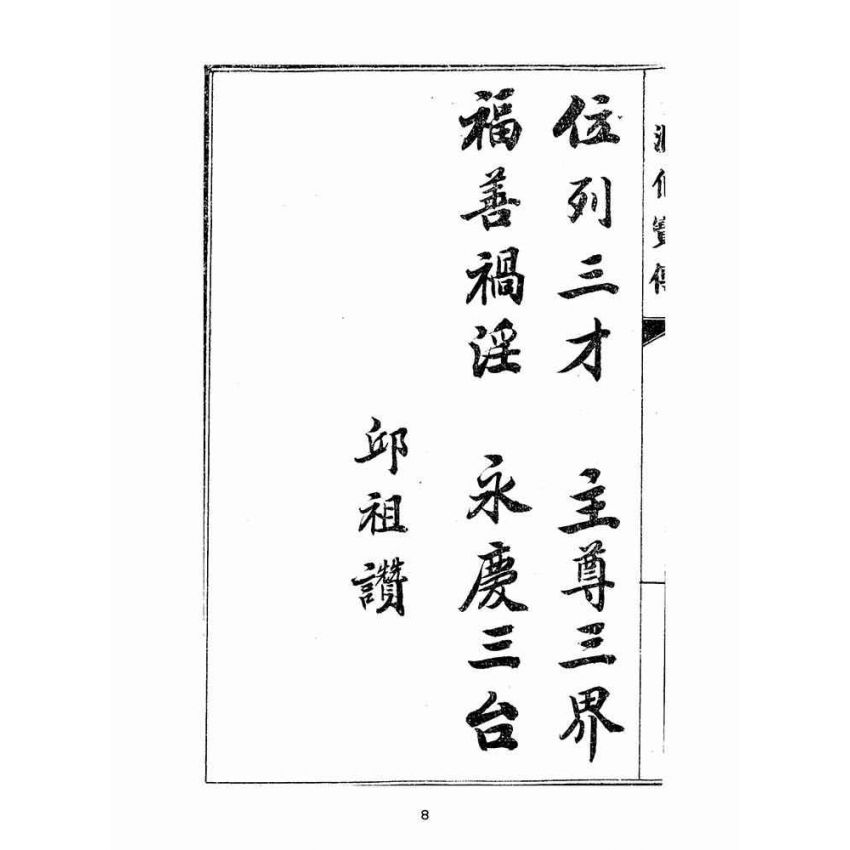 位列三才 主尊三界
福善禍淫 永慶三台
邱祖讚
8